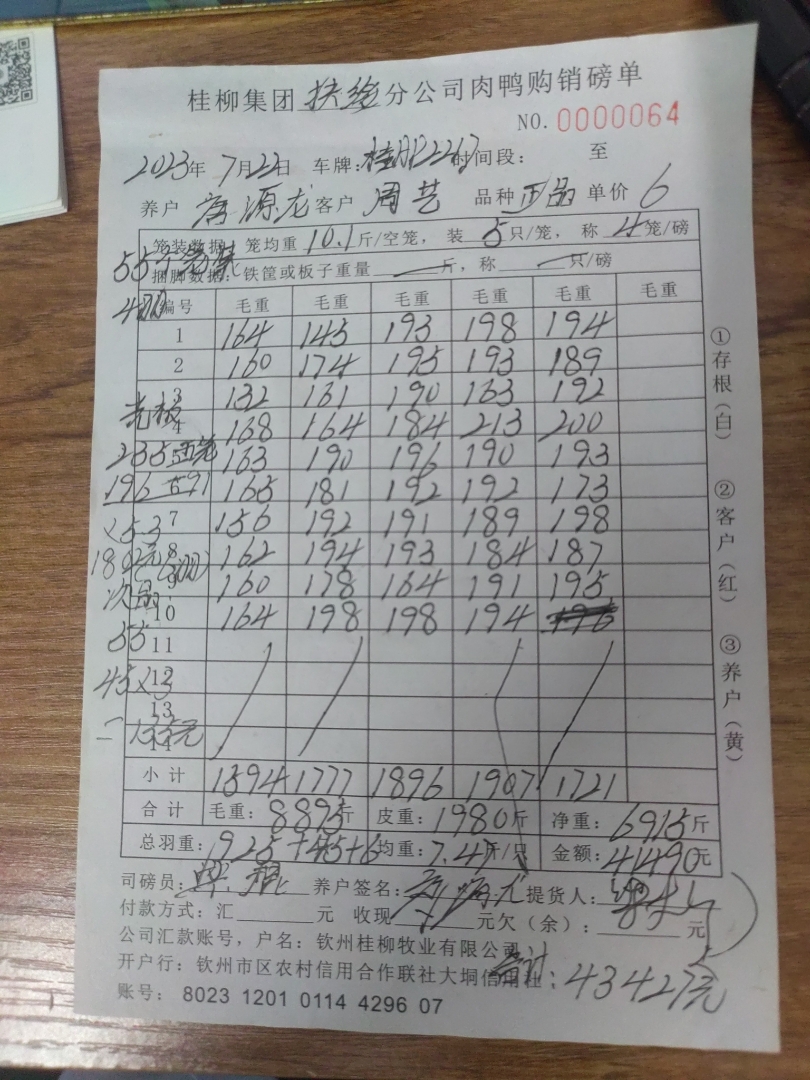 桂柳集团 扶绥 分公司肉鸭购销磅单
NO. 0000064
2023年 7月22日 车牌: 时间段: 至
养户 源龙 客户 周艺 品种 正品 单价 6
笼装数据: 笼均重 10.1 斤/空笼, 装 5 只/笼, 称 4 笼/磅
捆脚数据: 铁筐或板子重量 — 斤, 称 — 只/磅
编号 毛重 毛重 毛重 毛重 毛重 毛重
1 164 145 193 198 194
2 160 174 195 193 189
3 132 161 190 163 192
4 168 164 184 213 200
5 163 190 196 190 193
6 165 181 192 192 173
7 156 192 191 189 198
8 162 194 193 184 187
9 160 178 164 191 195
10 164 198 198 194
11
12
13
14
小计 1594 1777 1896 1907 1721
合计 毛重: 8895斤 皮重: 1980斤 净重: 6915斤
总羽重: 925+45+6 均重: 7.47斤/只 金额: 41490元
司磅员: 养户签名: 提货人:
付款方式: 汇 元 收现 元 欠(余): 元
公司汇款账号, 户名: 钦州桂柳牧业有限公司
开户行: 钦州市区农村信用合作联社大垌信用社
合计: 43427元
账号: 8023 1201 0114 4296 07
①存根(白)
②客户(红)
③养户(黄)
235
196
1802元
次品:
55
45×3
=135元